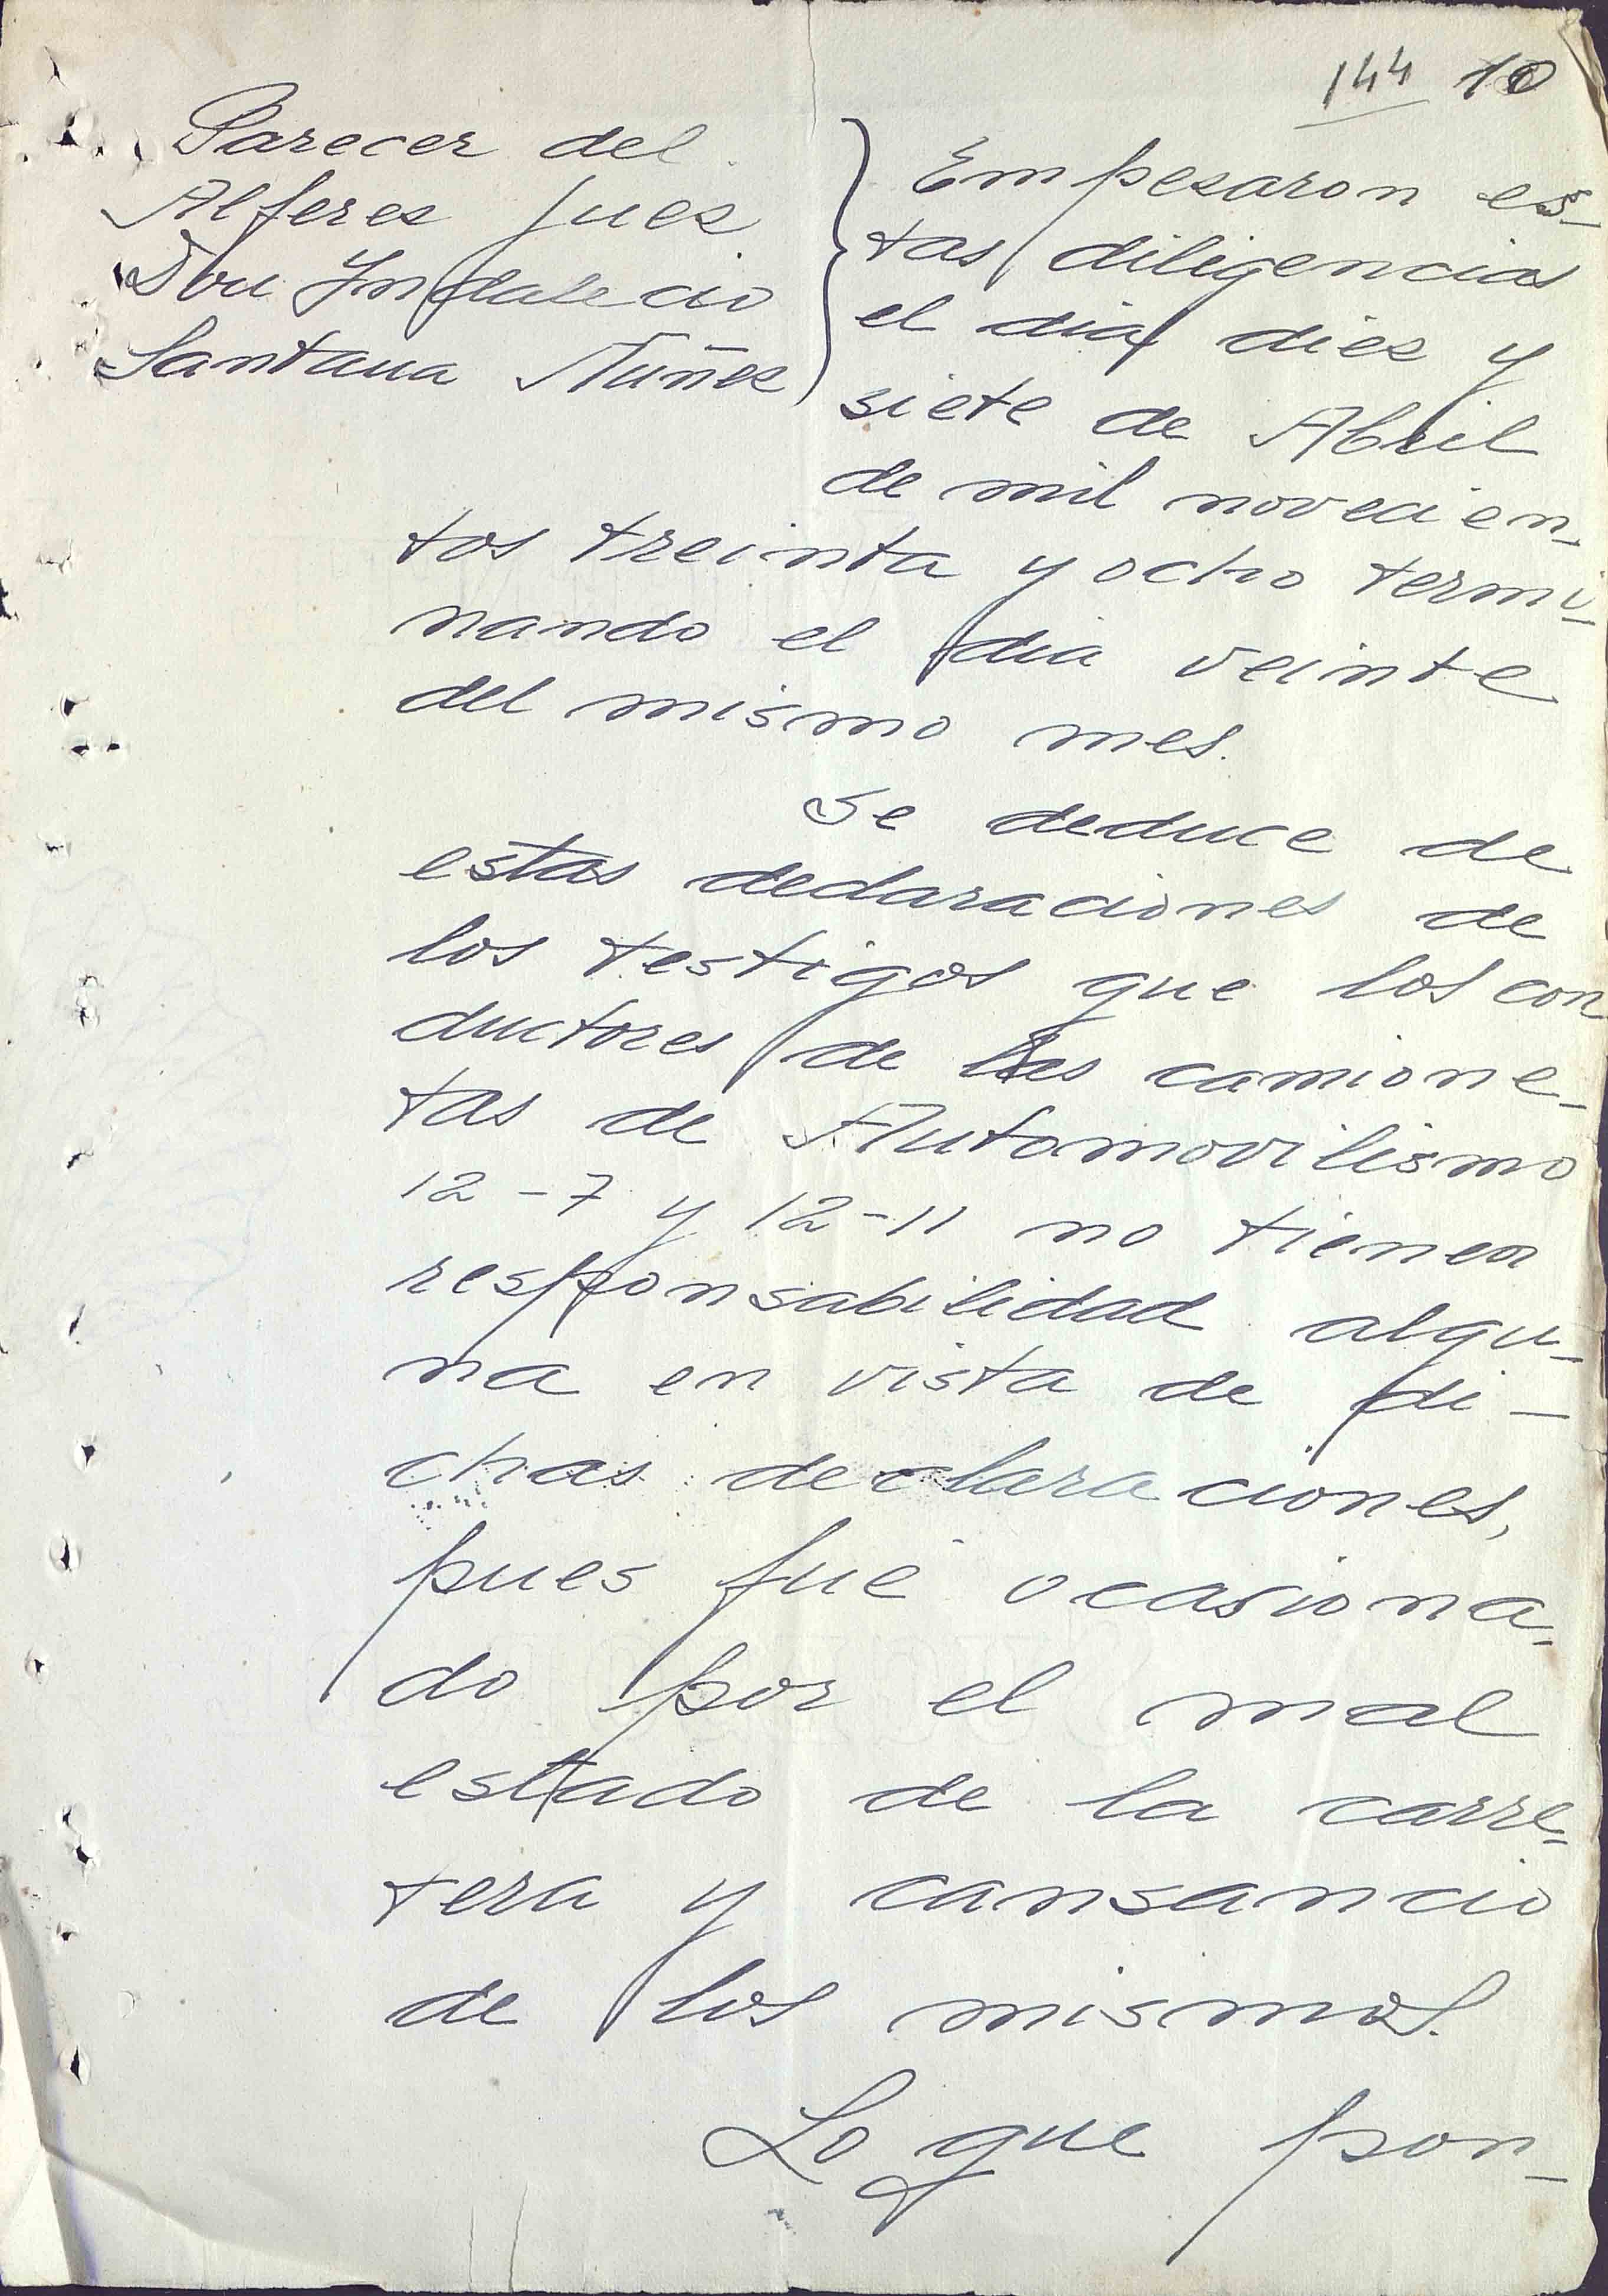 144 10
Parecer del
Alferes Jues
Don Yndalecio
Santana Nuñes
Empesaron es-
tas diligencias
el dia dies y
siete de Abril
de mil novecien-
tos treinta y ocho termi-
nando el dia veinte
del mismo mes.
Se deduce de
estas declaraciones de
los testigos que los con
ductores de las camione-
tas de Automovilismo
12-7 y 12-11 no tienen
responsabilidad algu-
na en vista de di-
chas declaraciones,
pues fué ocasiona-
do por el mal
estado de la carre-
tera y cansancio
de los mismos.
Lo que pon-